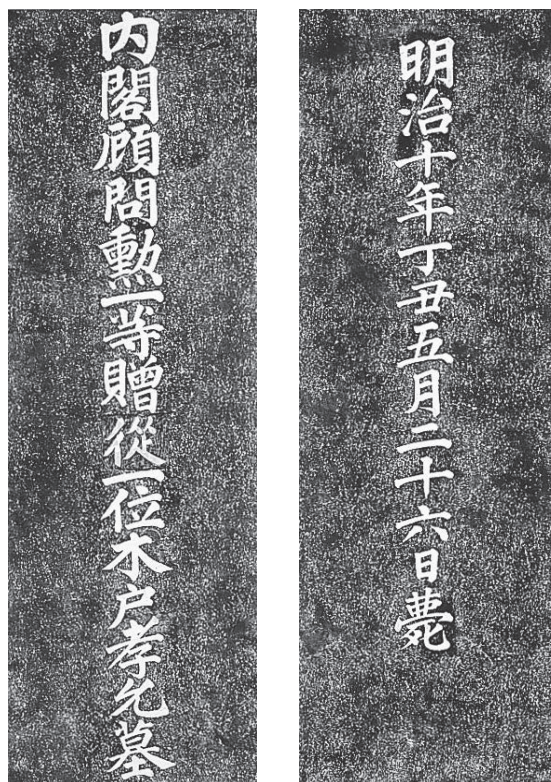 明治十年丁丑五月二十六日薨
内閣顧問勳一等贈從一位木戸孝允墓